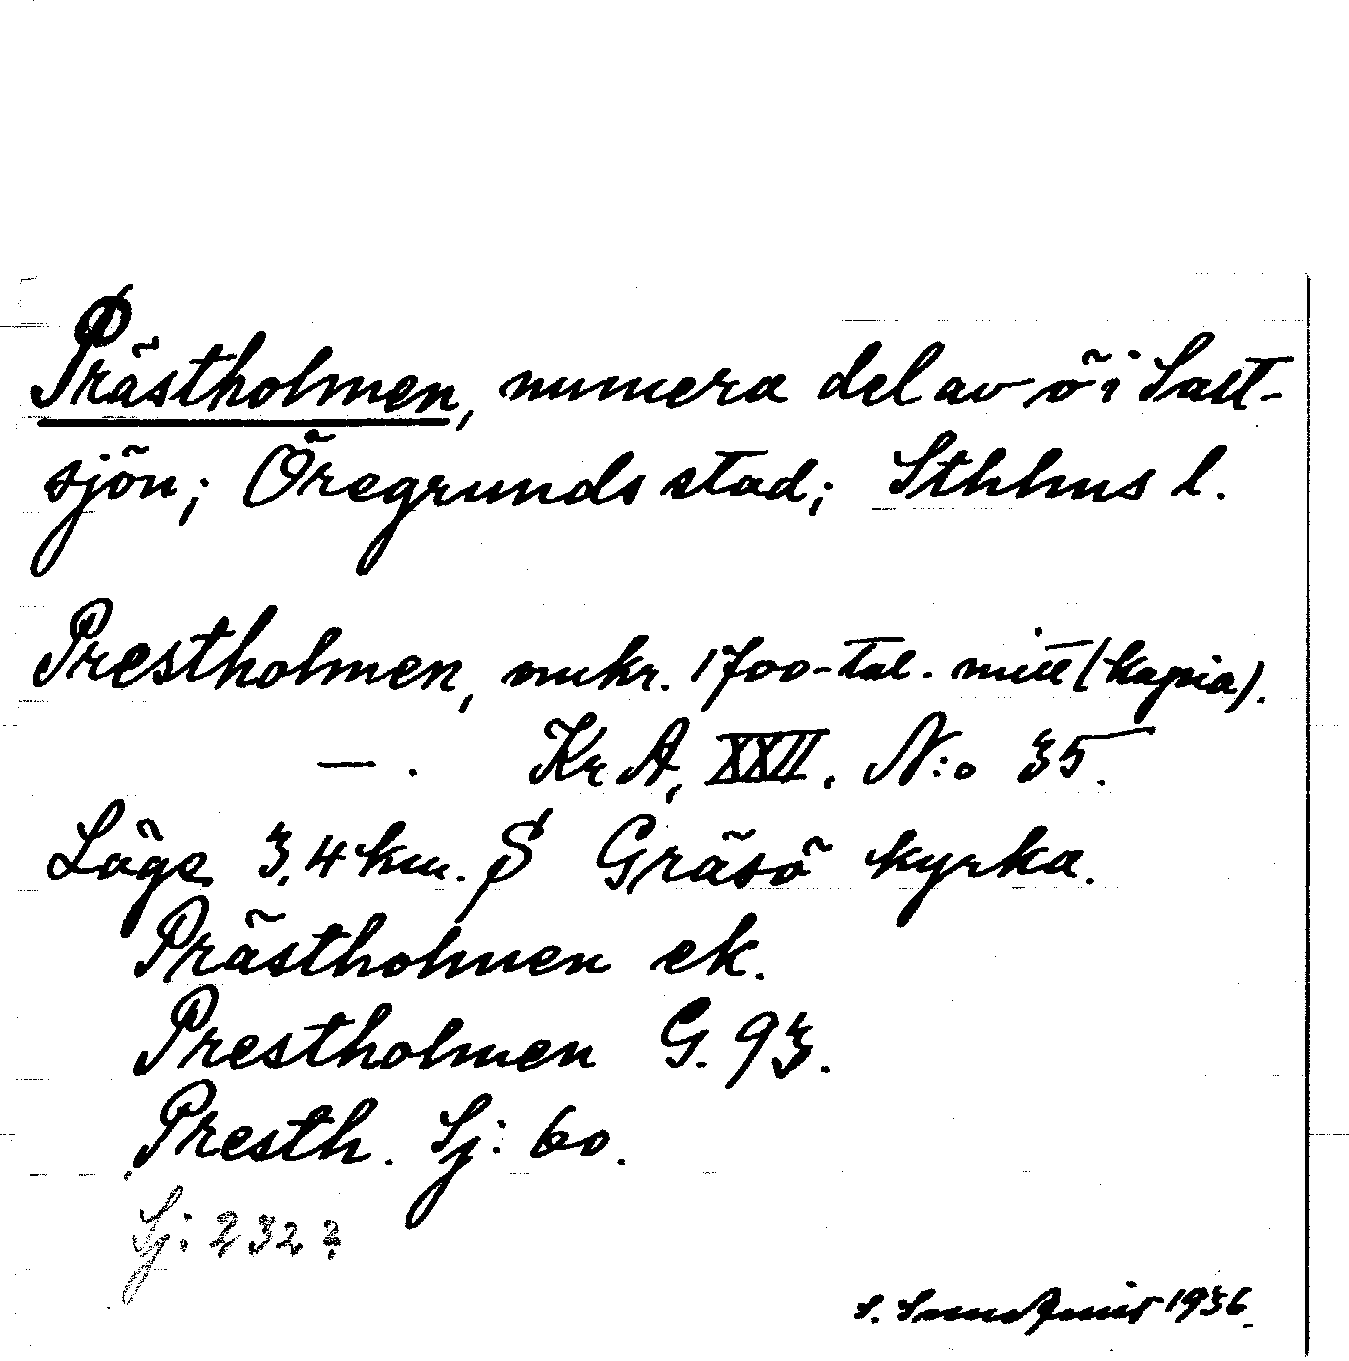 Prästholmen, numera del av ö i Salt-
sjön; Öregrunds stad; Sthlms l.
Prestholmen, mkr. 1700-tal. mitt (kopia).
— . Kr A, XXII. N:o 35.
Läge 3,4 km. S Gräsö kyrka.
Prästholmen ek.
Prestholmen G. 93.
Presth. Sj: 60.
Sj: 232?
S. 1936.